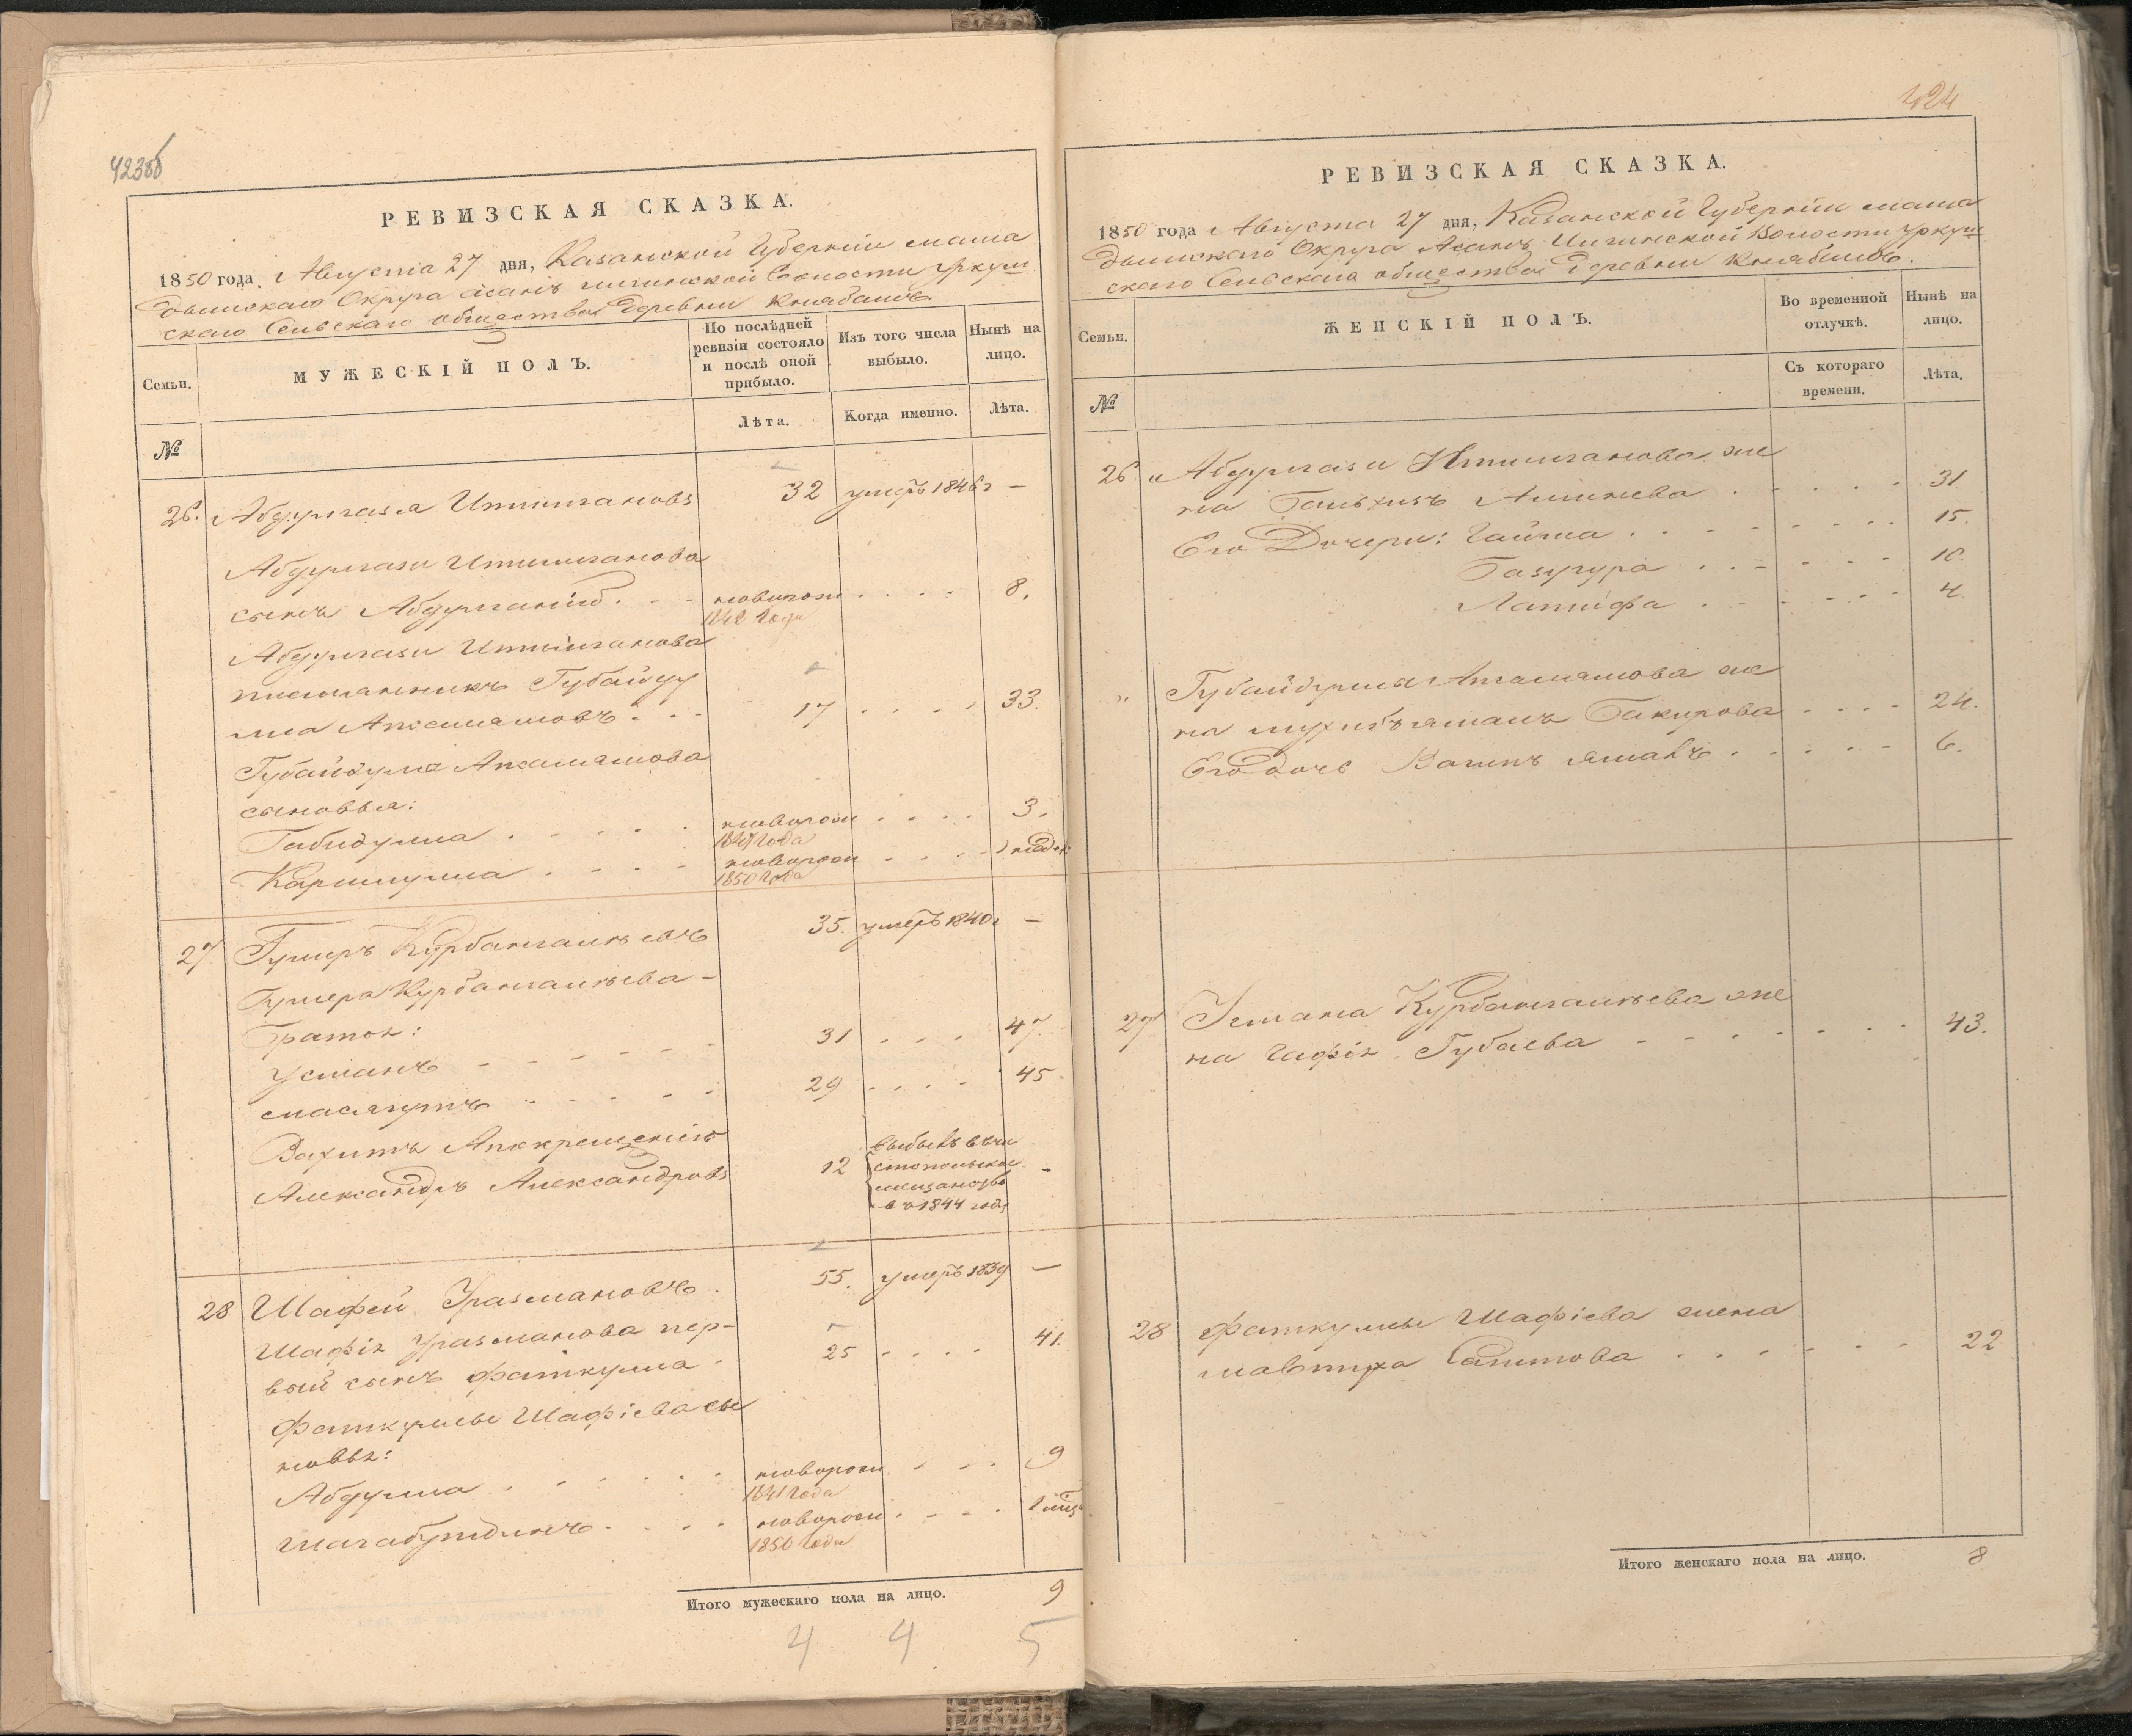 423об
РЕВИЗСКАЯ СКАЗКА.
1850 года Августа 27 дня, Казанской Губерніи мама
дышскаго Округа Асанъ Илгинской Волости Уркуш
скаго Сельскаго общества деревни Клябашъ
Семьи.
МУЖЕСКІЙ ПОЛЪ.
По послѣдней ревизіи состояло и послѣ оной прибыло.
Изъ того числа выбыло.
Нынѣ на лицо.
№
Лѣта.
Когда именно.
Лѣта.
26. Абдулгазы 32 умеръ 1846 г —
Абдулгази
сынъ Абдулганій . . новорож . . . . 8.
184 года
Абдулгази
племянникъ Губайду
лла . . 17 . . . . 33.
Губайдулла
сыновья:
Габидулла . . . . . новорож . . . . 3.
1847 года
Каримулла . . . . новорож . . . .
1850 года
27 Гумеръ Курбангалѣевъ 35. умеръ 1840 г —
Гумера Курбангалѣева –
братья:
Усманъ – – – – – – 31 . . . 47.
Масягутъ . . . . . 29 . . . . 45
Вахитъ
Александръ Александровъ 12 выбылъ въ чи
стопольское —
мещанство
въ 1844 году
28 Шафей Уразмановъ. 55. умеръ 1839 —
Шафія Уразманова пер–
вый сынъ Фаткулла . 25 . . . . 41.
Фаткуллы Шафіева сы
новья:
Абдулла . . . . . новорож . . . 9
1841 года
Шагабутдинъ . . . . новорож . . . . 1 мѣся
1850 года
Итого мужескаго пола на лицо. 9
4 4 5
424
РЕВИЗСКАЯ СКАЗКА.
1850 года Августа 27 дня, Казанской Губерніи мама
дышскаго Округа Асанъ Илгинской Волости Уркуш
скаго Сельскаго общества деревни Клябашъ.
Семьи.
ЖЕНСКІЙ ПОЛЪ.
Во временной отлучкѣ.
Нынѣ на лицо.
№
Съ котораго времени.
Лѣта.
26 Абдулгази же
на . . . . . 31
Его Дочери: Гайша . . . . . . . 15.
Базгура . . . . . . 10.
Латифа . . . . . . 4.
" Губайдуллы же
на Бакирова . . . . 24.
Его дочь . . . . . 6.
27 Усмана Курбангалѣева же
на Губаева – – – . . . . 43.
28 Фаткуллы Шафіева жена
Мавтуха Сагитова . . . . . . . 22
Итого женскаго пола на лицо. 8